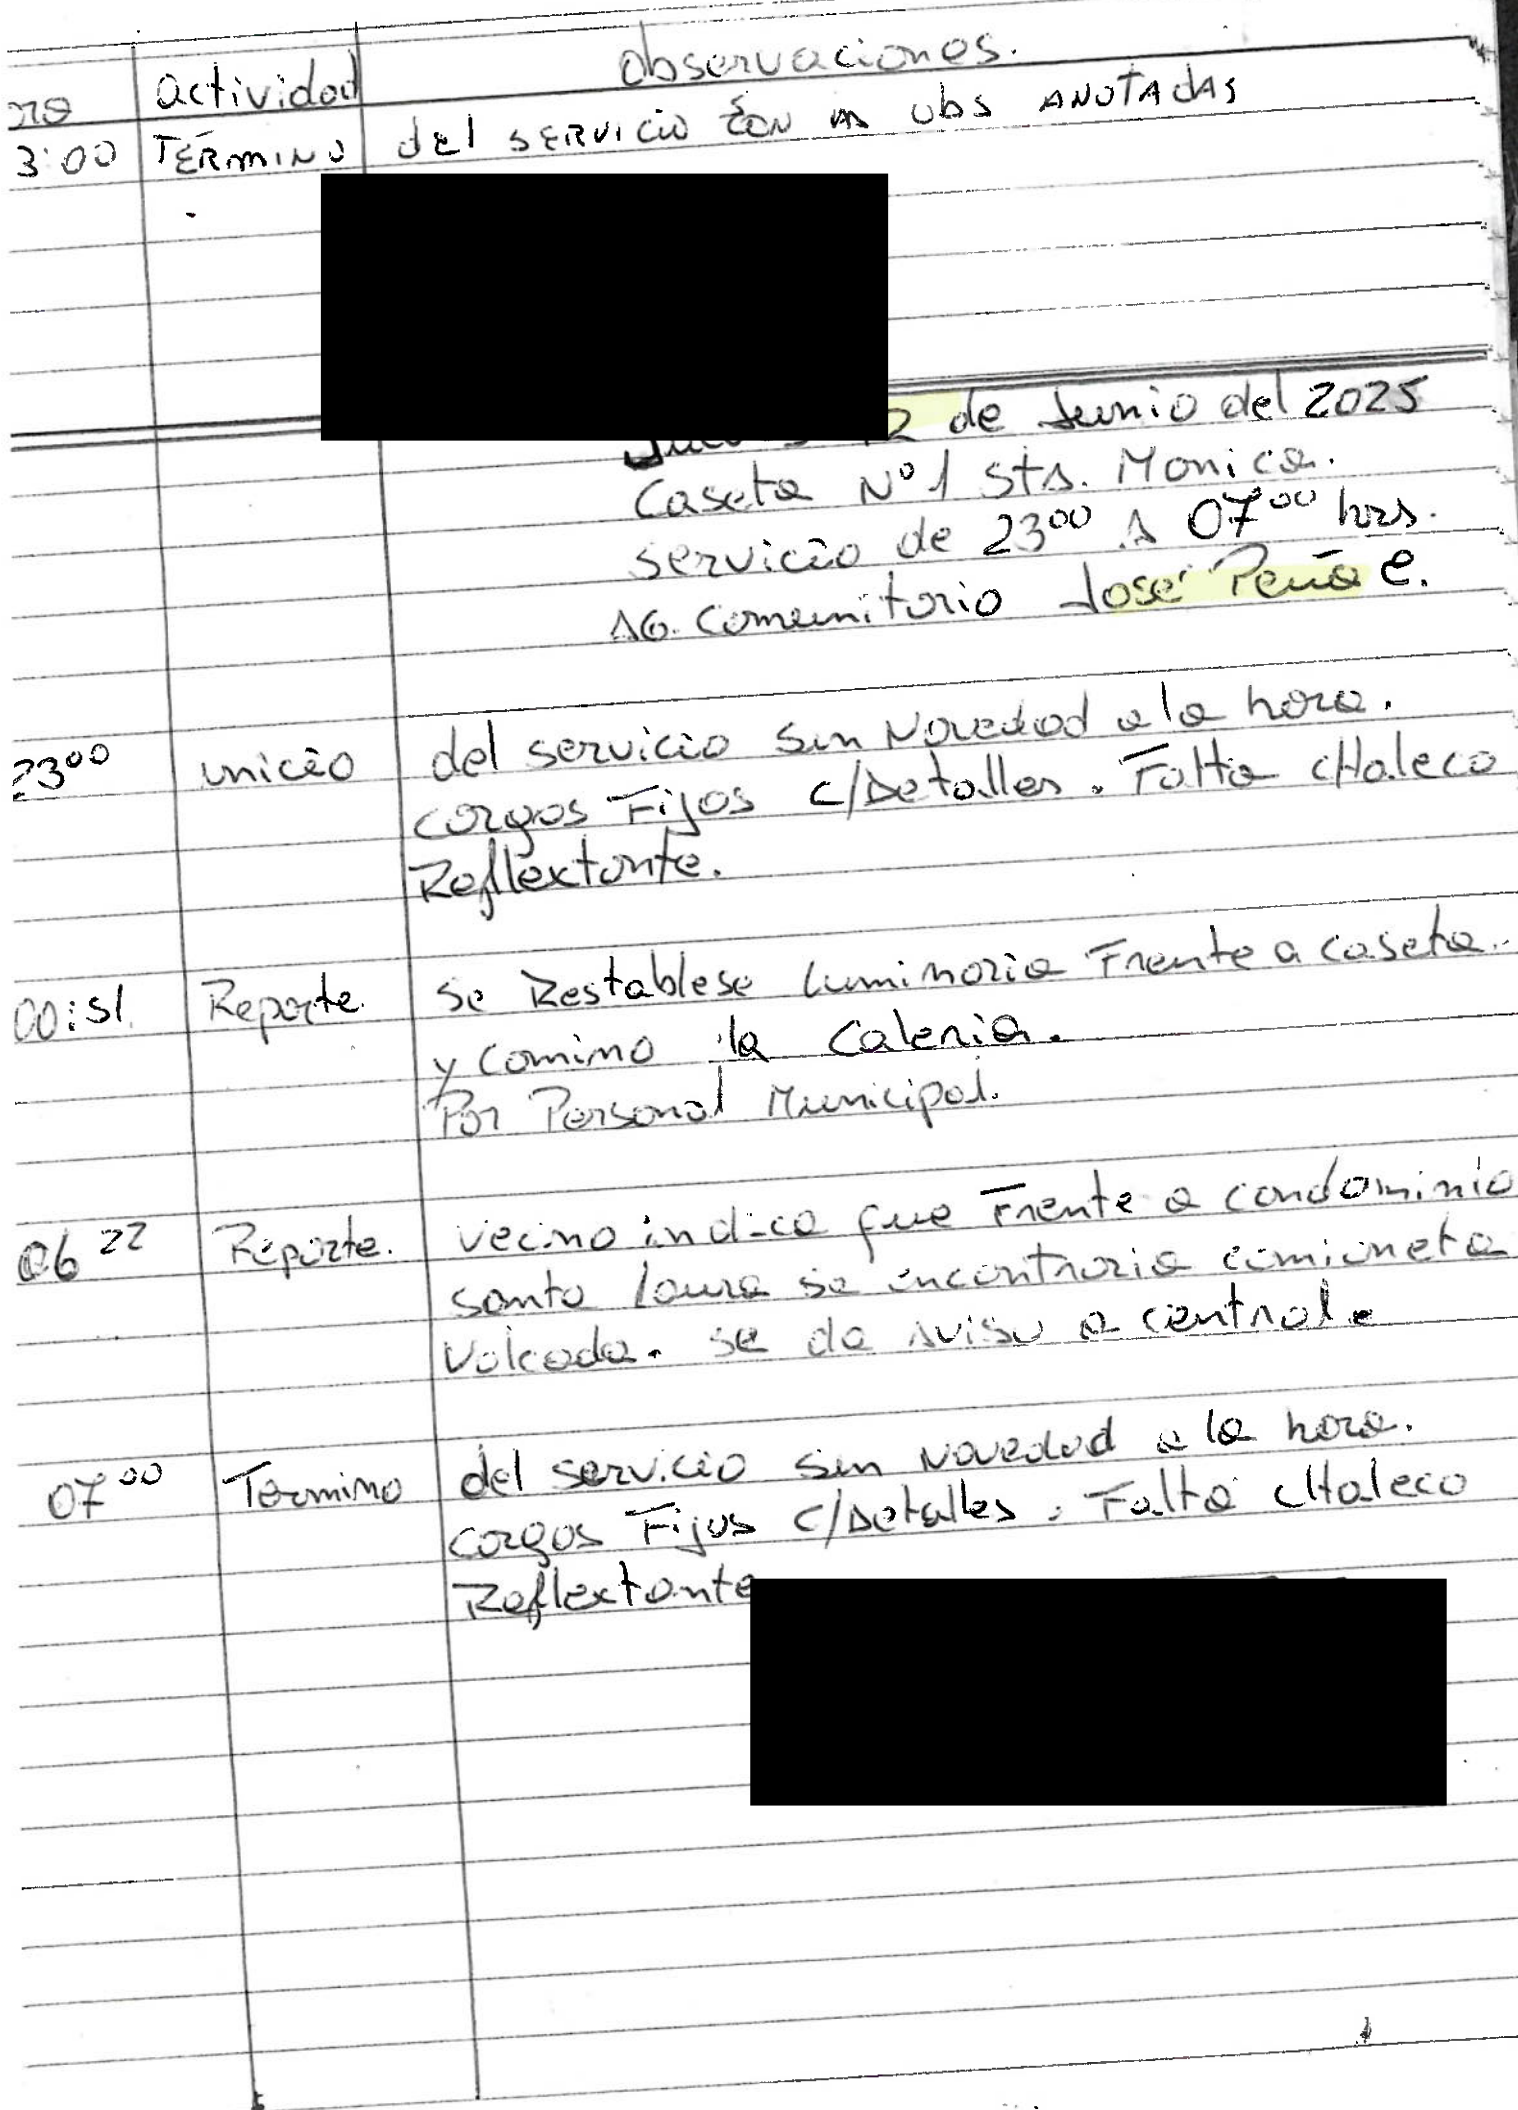 ora actividad Observaciones.
3:00 TÉRMINO del SERVICIO CON obs ANOTADAS
12 de Junio del 2025
Caseta N°1 Sta. Monica.
servicio de 23⁰⁰ A 07⁰⁰ hrs.
AG. Comunitario José Peña C.
23⁰⁰ inicio del servicio sin Novedad a la hora.
cargos Fijos c/Detalles. Falta cHaleco
Reflextante.
00:51. Reporte. Se Restablese luminaria Frente a caseta.
y Camino la Caleria.
Por Personal Municipal.
06 22 Reporte. vecino indica que Frente a condominio
santa laura se encontraria camioneta
Volcada. se da Aviso a central.
07⁰⁰ Termino del servicio sin Novedad a la hora.
cargos Fijos c/Detalles. Falta cHaleco
Reflextante